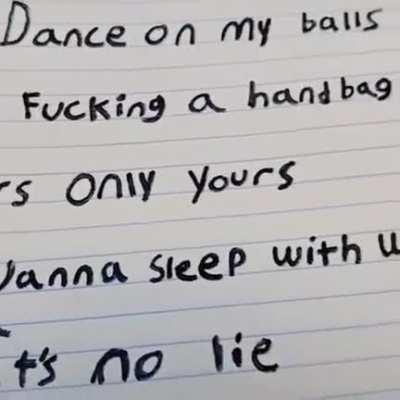 Dance on my balls
Fucking a handbag
rs only yours
Wanna sleep with
t's no lie